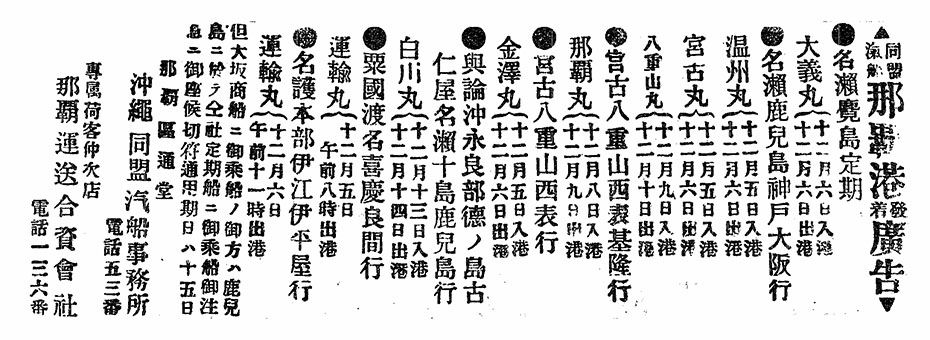 ▲同盟汽船那覇港發着廣告▼
●名瀬覺島定期
大義丸{十二月六日入港
十二月六日出港
●名瀬鹿兒島神戸大阪行
温州丸{十二月五日入港
十二月六日出港
宮古丸{十二月五日入港
十二月六日出港
八重山丸{十二月九日入港
十二月十日出港
●宮古八重山西表基隆行
那覇丸{十二月八日入港
十二月九日出港
●宮古八重山西表行
金澤丸{十二月五日入港
十二月六日出港
●與論沖永良部徳ノ島古
仁屋名瀬十島鹿兒島行
白川丸{十二月十三日入港
十二月十四日出港
●粟國渡名喜慶良間行
運輸丸{十二月五日
午前八時出港
●名護本部伊江伊平屋行
運輸丸{十二月六日
午前十一時出港
但大坂商船ニ御乘船ノ御方ハ鹿兒
島ニ於テ仝社定期船ニ御乘船御注
意ニ御座候切符通用期日ハ十五日
那覇區通堂
沖繩同盟汽船事務所
電話五三番
專属荷客仲次店
那覇運送合資會社
電話一三六番